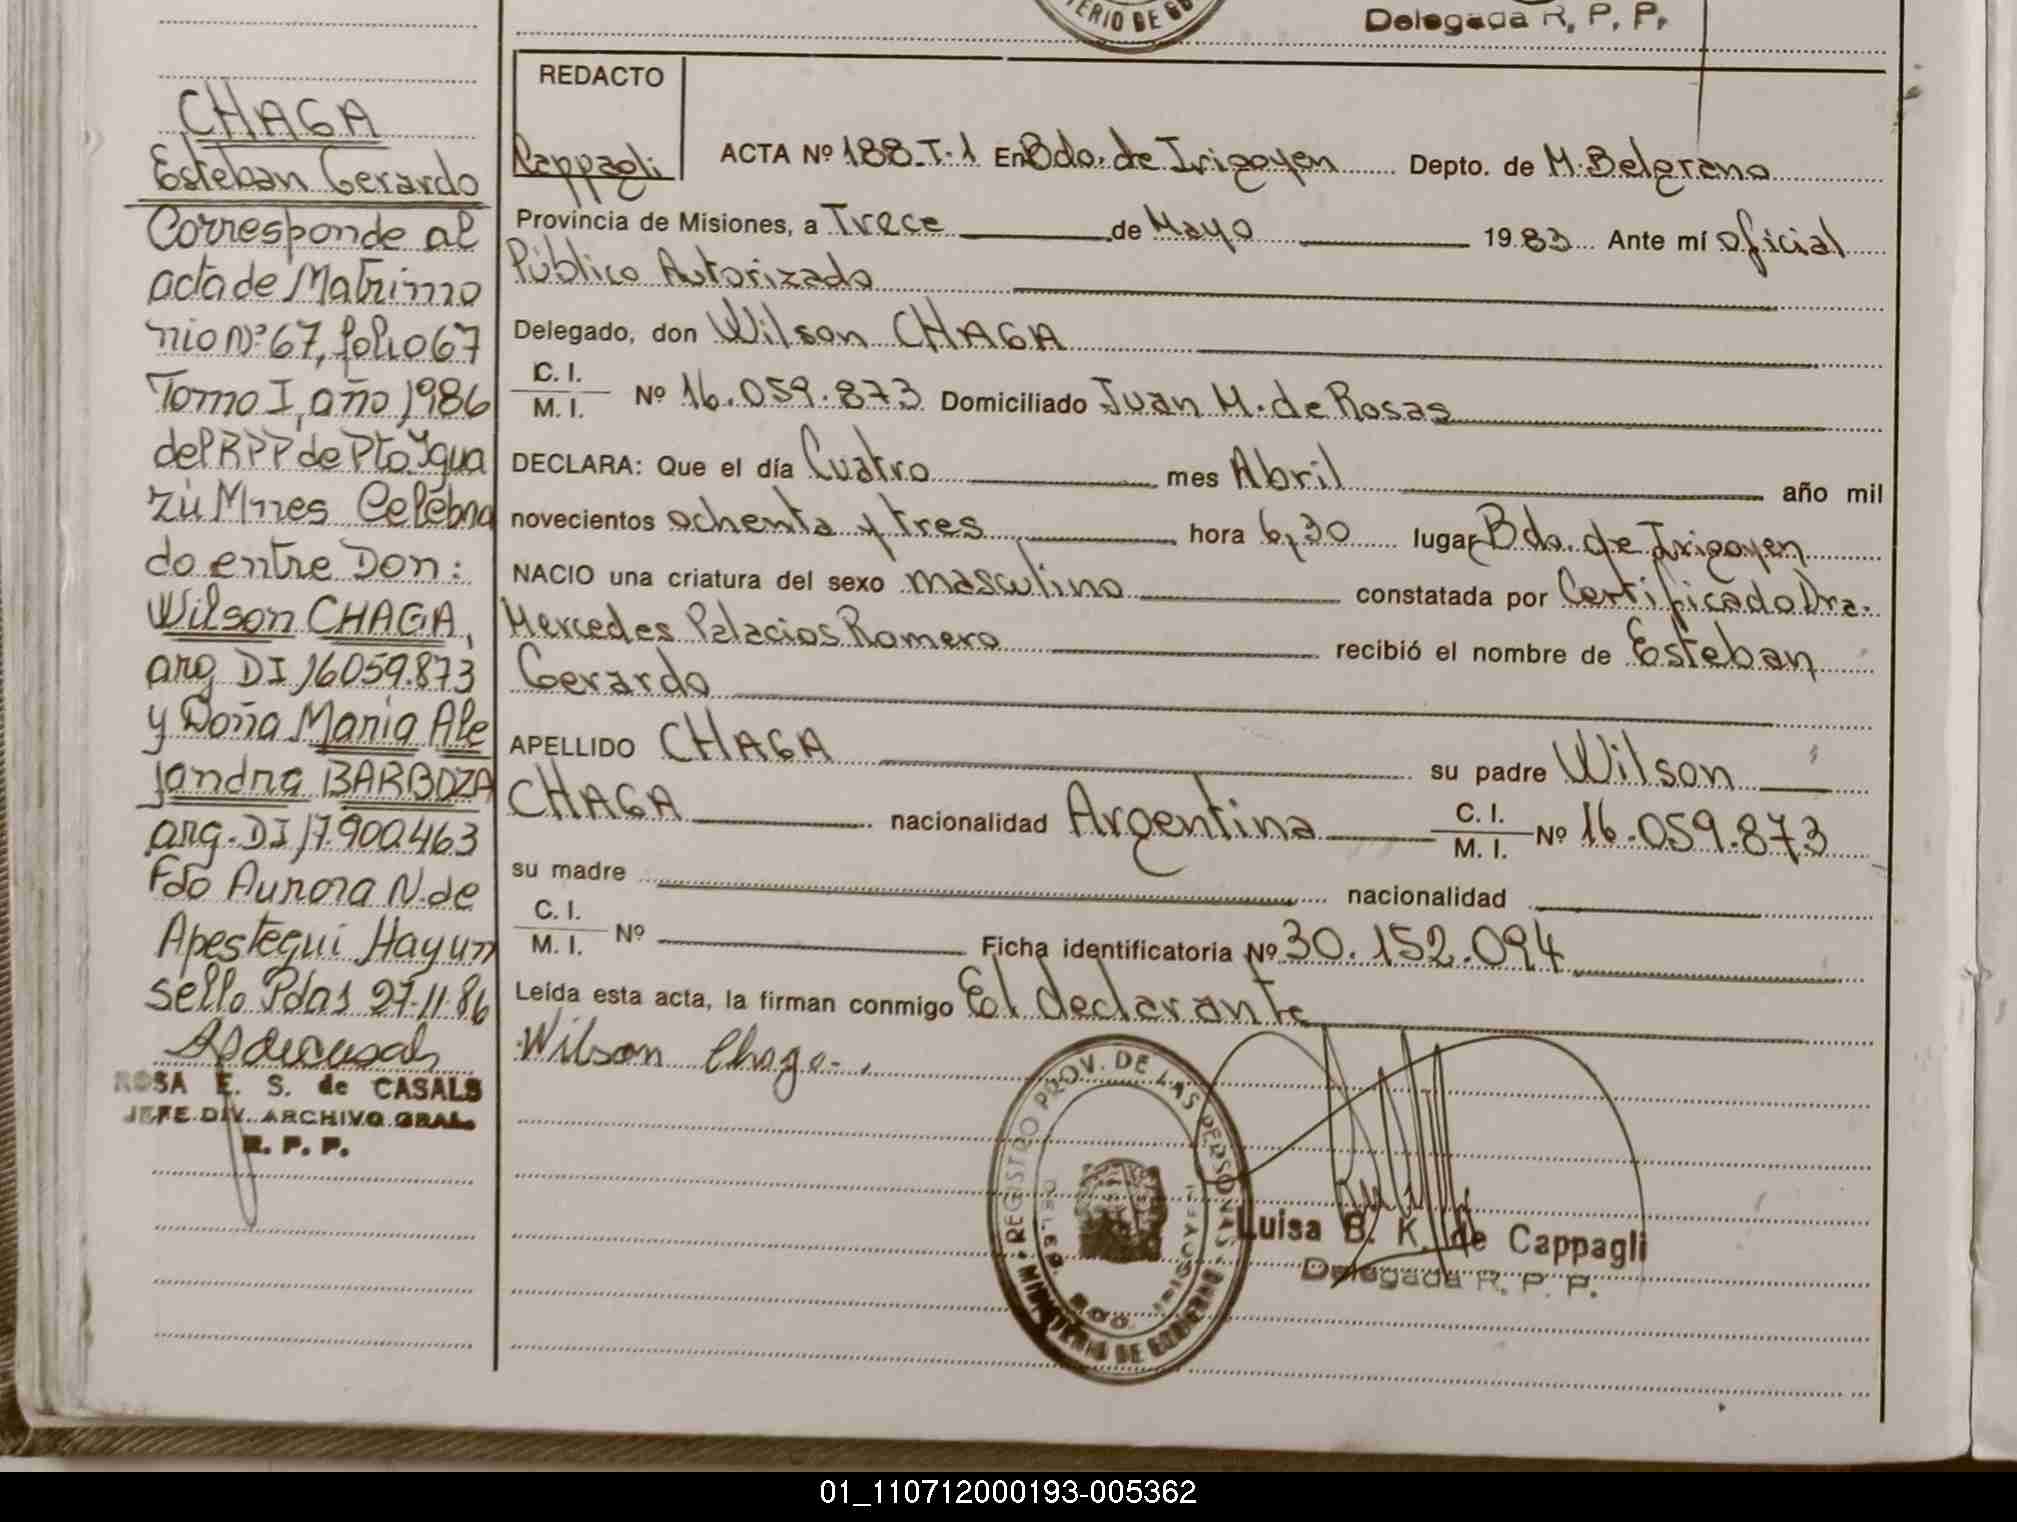 TERIO DE GO
Delegada R. P. P.
CHAGA
Esteban Gerardo
Corresponde al
acta de Matrimo
nio Nº 67, folio 67
Tomo I, año 1986
del RPP de Pto. Igua
zú Mnes Celebra
do entre Don:
Wilson CHAGA,
arg DI 16059.873
y Doña Maria Ale
jandra BARBOZA
arg. DI 17.900.463
Fdo Aurora N. de
Apestegui Hay un
sello Pdas 27-11-86
ROSA E. S. de CASALS
JEFE DIV. ARCHIVO GRAL.
R. P. P.
REDACTO
Cappagli
ACTA Nº 188-T-1 En Bdo. de Irigoyen Depto. de M. Belgrano
Provincia de Misiones, a Trece de Mayo 1983 Ante mí oficial
Público Autorizado
Delegado, don Wilson CHAGA
C. I.
M. I. Nº 16.059.873 Domiciliado Juan M. de Rosas
DECLARA: Que el día Cuatro mes Abril año mil
novecientos ochenta y tres hora 6,30 lugar Bdo. de Irigoyen
NACIO una criatura del sexo masculino constatada por Certificado Dra.
Mercedes Palacios Romero recibió el nombre de Esteban
Gerardo
APELLIDO CHAGA su padre Wilson
CHAGA nacionalidad Argentina C. I. M. I. Nº 16.059.873
su madre nacionalidad
C. I.
M. I. Nº Ficha identificatoria Nº 30.152.094
Leída esta acta, la firman conmigo El declarante
Wilson Chaga
REGISTRO PROV. DE LAS PERSONAS
MINISTERIO DE GOBIERNO
DELEG. BDO. IRIGOYEN
Luisa B. K. de Cappagli
Delegada R. P. P.
01_110712000193-005362